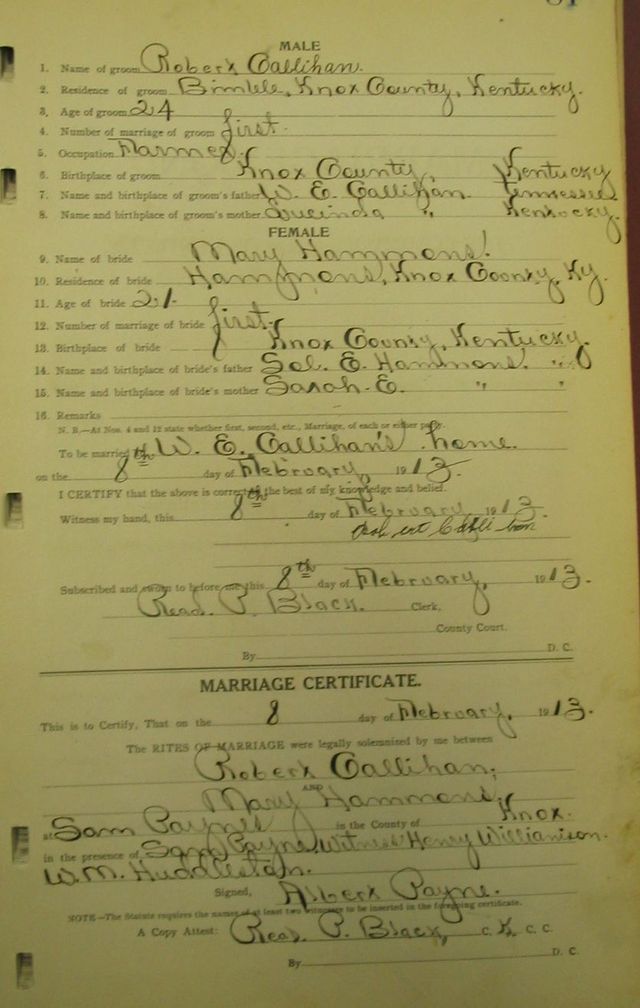 MALE
1. Name of groom Robert Callihan.
2. Residence of groom Bimble, Knox County, Kentucky.
3. Age of groom 24
4. Number of marriage of groom first.
5. Occupation Farmer
6. Birthplace of groom Knox County, Kentucky
7. Name and birthplace of groom's father W. E. Callihan. Tennessee
8. Name and birthplace of groom's mother Lucinda " Kentucky.
FEMALE
9. Name of bride Mary Hammons.
10. Residence of bride Hammons, Knox County, Ky.
11. Age of bride 21.
12. Number of marriage of bride first.
13. Birthplace of bride Knox County, Kentucky.
14. Name and birthplace of bride's father Sol. E. Hammons. " "
15. Name and birthplace of bride's mother Sarah. E. " "
16. Remarks
N. B.—At Nos. 4 and 12 state whether first, second, etc., Marriage, of each or either party.
To be married at W. E. Callihan's home.
on the 8th day of February, 1913.
I CERTIFY that the above is correct to the best of my knowledge and belief.
Witness my hand, this 8th day of February 1913.
Robert Callihan
Subscribed and sworn to before me this 8th day of February, 1913.
Read. P. Black. Clerk,
County Court.
By D. C.
MARRIAGE CERTIFICATE.
This is to Certify, That on the 8 day of February, 1913.
The RITES OF MARRIAGE were legally solemnized by me between
Robert Callihan,
AND
Mary Hammons,
at Sam Paynes in the County of Knox.
in the presence of Sam Payne, Witness Henry Willianison.
W.M. Huddleston.
Signed, Albert Payne.
NOTE—The Statute requires the names of at least two witnesses to be inserted in the foregoing certificate.
A Copy Attest: Read. P. Black, C. K. C. C.
By D. C.